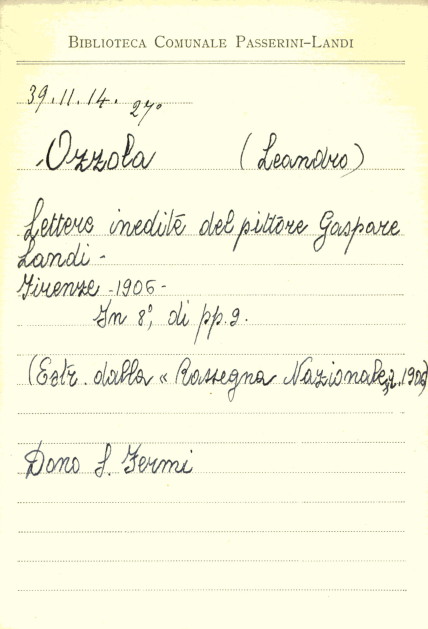 BIBLIOTECA COMUNALE PASSERINI-LANDI
39.11.14. 27º
Ozzola (Leandro)
Lettere inedite del pittore Gaspare
Landi -
Firenze - 1906 -
In 8º, di pp. 9.
(Estr. dalla « Rassegna Nazionale,,
Dono S. Fermi